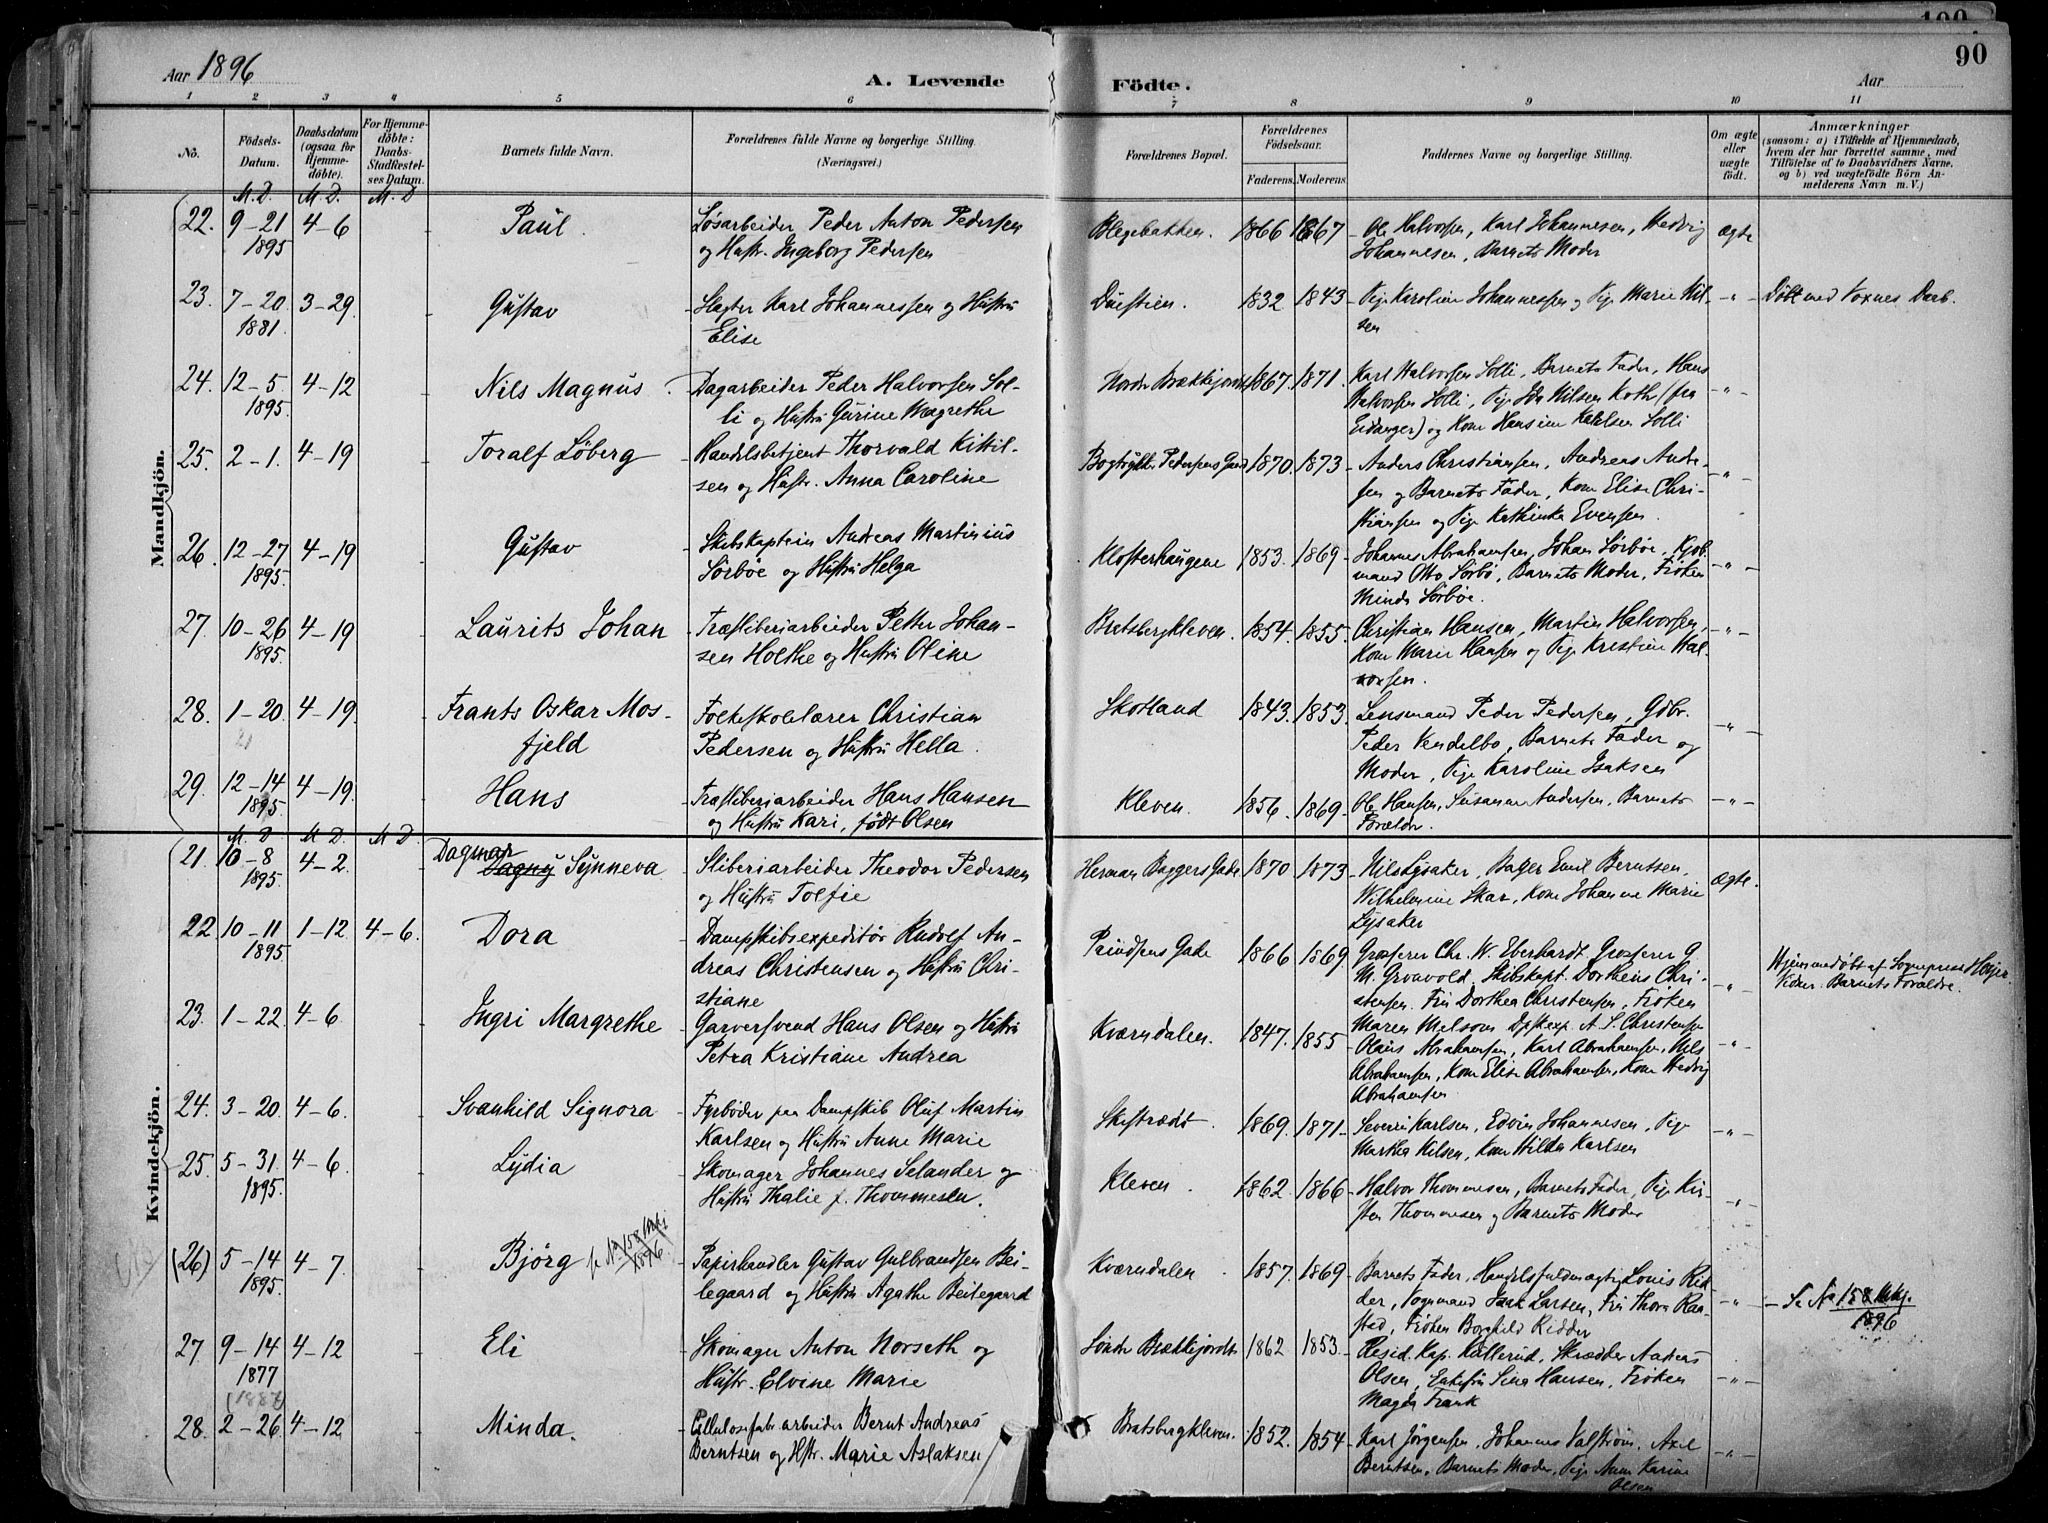 100
90
Aar 1896
A. Levende
Födte.
Aar
1 2 3 4 5 6 7 8 9 10 11
No.
Födsels-Datum.
Daabsdatum (ogsaa for Hjemmedöbte).
For Hjemmedöbte: Daabs-Stadfæstelses Datum.
Barnets fulde Navn.
Forældrenes fulde Navne og borgerlige Stilling.
(Næringsvei.)
Forældrenes Bopæl.
Forældrenes Födselsaar.
Faderens. Moderens.
Faddernes Navne og borgerlige Stilling.
Om ægte eller uægte födt.
Anmærkninger
(saasom: a) i Tilfælde af Hjemmedaab, hvem der har forrettet samme, med Tilföielse af to Daabsvidners Navne, og b) ved uægtefödte Börn Anmelderens Navn m. V.)
Mandkjön.
M. D. M. D. M. D
22. 9-21 1895 4-6 Paul. Løsarbeider Peder Anton Pedersen og Hustr. Ingeborg Pedersen Blegebakken. 1866 1867 Ole Halvorsen, Karl Johannesen, Hedvig Johannesen, Barnets Moder ægte
23. 7-20 1881 3-29 Gustav Slagter Karl Johannessen og Hustru Elise Duestien. 1832 1843 Pige Karoline Johannessen og Pige Marie Nilsen -"- Døbt med Voxnes Daab.
24. 12-5 1895. 4-12 Nils Magnus. Dagarbeider Peder Halvorsen Solli og Hustru Gurine Magrethe Nordre Brækkejordet 1867. 1871. Karl Halvorsen Solli, Barnets Fader, Hans Halvorsen Solli, Pige Ida Nilsen Koth (fra Eidanger) og Kone Hansine Solli -"-
25. 2-1. 4-19 Toralf Løberg Handelsbetjent Thorvald Kittilsen og Hustr. Anna Caroline Bogtrykker Pedersens Gaard 1870 1873 Anders Christiansen, Andreas Andersen og Barnets Fader, Kone Elise Christiansen og Pige Kathinka Evensen. -"-
26. 12-27 1895. 4-19 Gustav Skibskaptein Andreas Martinius Sörböe og Hustru Helga Klosterhaugene 1853. 1869 Johannes Abrahamsen, Johan Sörböe, Kjøbmand Otto Sörbö, Barnets Moder, Frøken Minda Sörböe. -"-
27. 10-26 1895. 4-19 Laurits Johan Træsliberiarbeider Petter Johansen Holthe og Hustru Oline Bratsbergkleven. 1854. 1855. Christian Hansen, Martin Halvorsen, Kone Marie Hansen og Pige Kristine Halvorsen. -"-
28. 1-20. 21 4-19. Frants Oskar Mosfjeld Folkeskolelærer Christian Pedersen og Hustru Hella. Skotland 1843. 1853. Lensmand Peder Pedersen, Gdbr. Peder Vendelbo, Barnets Fader og Moder, Pige Karoline Isaksen -"-
29. 12-14 1895. 4-19. Hans Træsliberiarbeider Hans Hansen og Hustru Kari, født Olsen Kleven. 1856. 1869 Ole Hansen, Susanne Andersen, Barnets Forældre. -"-
Kvindekjön.
M. D. M. D. M. D.
21. 10-8 1895. 4-2. Dagmar Dagny Synneva Sliberiarbeider Theodor Pedersen og Hustru Tolfie Herman Baggers Gade 1870 1873 Nils Lysaker, Bager Emil Berntsen, Wilhelmine Skar, Kone Johanne Marie Lysaker ægte.
22 10-11 1895. 1-12 4-6. Dora Dampskibsexpeditör Rudolf Andreas Christensen og Hustru Christiane Gade 1866 1869. Grosserer Chr. W. Eberhardt, Grosserer G. M. Gronvold, Skibskapt. Christensen, Fru Dorthea Christensen, Frøken Maren Nielson, Dpskexp. A. S. Christensen -"- Hjemmedøbt af Sognepræst Høyer Vidner. Barnets Forældre.
23. 1-22. 4-6. Ingri Margrethe Garversvend Hans Olsen og Hustru Petra Kristiane Andrea Kværndalen. 1847. 1855 Olaus Abrahamsen, Karl Abrahamsen, Nils Abrahamsen, Kone Elise Abrahamsen, Kone Hedvig Abrahamsen -"-
24. 3-20. 4-6. Svanhild Signora Fyrbøder paa Dampskib Oluf Martin Karlsen og Hustru Anne Marie 1869. 1871 Severin Karlsen, Edvin Johannesen, Pige Martha Nilsen, Kone Hilda Karlsen -"-
25. 5-31. 1895. 4-6. Lydia Skomager Johannes Selander og Hustru Thalie f. Thommesen. Kleven. 1862. 1866 Halvor Thommesen, Barnets Fader, Pige Kirsten Thommesen og Barnets Moder -"-
(26) 5-14 1895. 4-7. Bjørg se No 158 Mkj. 1896. Papirhandler Gustav Gulbrandsen Beilegaard og Hustru Agathe Beilegaard Kværndalen 1857. 1869 Barnets Fader, Handelsfuldmægtig Louis Ridder, Vognmand Isak Larsen, Fru Thora Raastad, Frøken Borghild Ridder -"- Se No 158 Mkj. 1896
27. 9-14 1877 (1882) 4-12 Eli Skomager Anton Norseth og Hustr. Elvine Marie Søndre Brækkejordet 1862 1853. Resid. Kap. Kullerud, Skrædder Anders Olsen, Enkefru Sina Hansen, Frøken Magda Frank -"-
28. 2-26 4-12 Minda. Cellulosefabr.arbeider Bernt Andreas Berntsen og Hstr. Marie Aslaksen Bratsbergkleven. 1852. 1854 Karl Jørgensen, Johannes Valstrøm, Axel Berntsen, Barnets Moder, Pige Anne Karine Olsen -"-